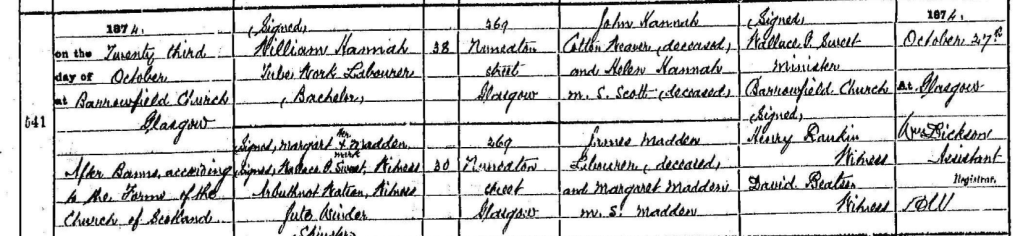 1874.
on the Twenty third
day of October
at Barrowfield Church
Glasgow
After Banns, according
to the Forms of the
Church of Scotland
541
(Signed)
William Hannah
Tube Work Labourer
(Bachelor)
Signed, Margaret her x mark Madden
Signed, Wallace P. Sweet, Witness
Arbuthnot Watson, Witness
Jute Winder
(Spinster)
38
30
269
Nuneaton
street
Glasgow
269
Nuneaton
street
Glasgow
John Hannah
Cotton Weaver, (deceased)
and Helen Hannah
m. S. Scott (deceased)
James Madden
Labourer, (deceased)
and Margaret Madden
m. S. Madden
(Signed)
Wallace P. Sweet
Minister
Barrowfield Church
(Signed)
Henry Rankin
Witness
David Beatson
Witness
1874.
October 27th
At Glasgow
Wm Dickson
Assistant
Registrar.